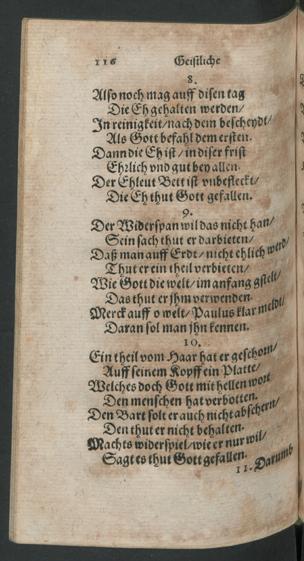 116 Geistliche
8.
Also noch mag auff disen tag
Die Eh gehalten werden/
In reinigkeit/ nach dem bescheydt/
Als Gott befahl dem ersten.
Dann die Eh ist/ in diser frist
Ehrlich vnd gut bey allen.
Der Ehleut Bett ist vnbefleckt/
Die Eh thut Gott gefallen.
9.
Der Widerspan wil das nicht han/
Sein sach thut er darbieten/
Daß man auff Erdt/ nicht ehlich werd/
Thut er ein theil verbieten/
Wie Gott die welt/ im anfang gstelt/
Das thut er jhm verwenden.
Merck auff o welt/ Paulus klar meldt/
Daran sol man jhn kennen.
10.
Ein theil vom Haar hat er geschorn/
Auff seinem Kopff ein Platte/
Welches doch Gott mit hellen wort
Den menschen hat verbotten.
Den Bart solt er auch nicht abschern/
Den thut er nicht behalten.
Machts widerspiel/ wie er nur wil/
Sagt es thut Gott gefallen.
11. Darumb